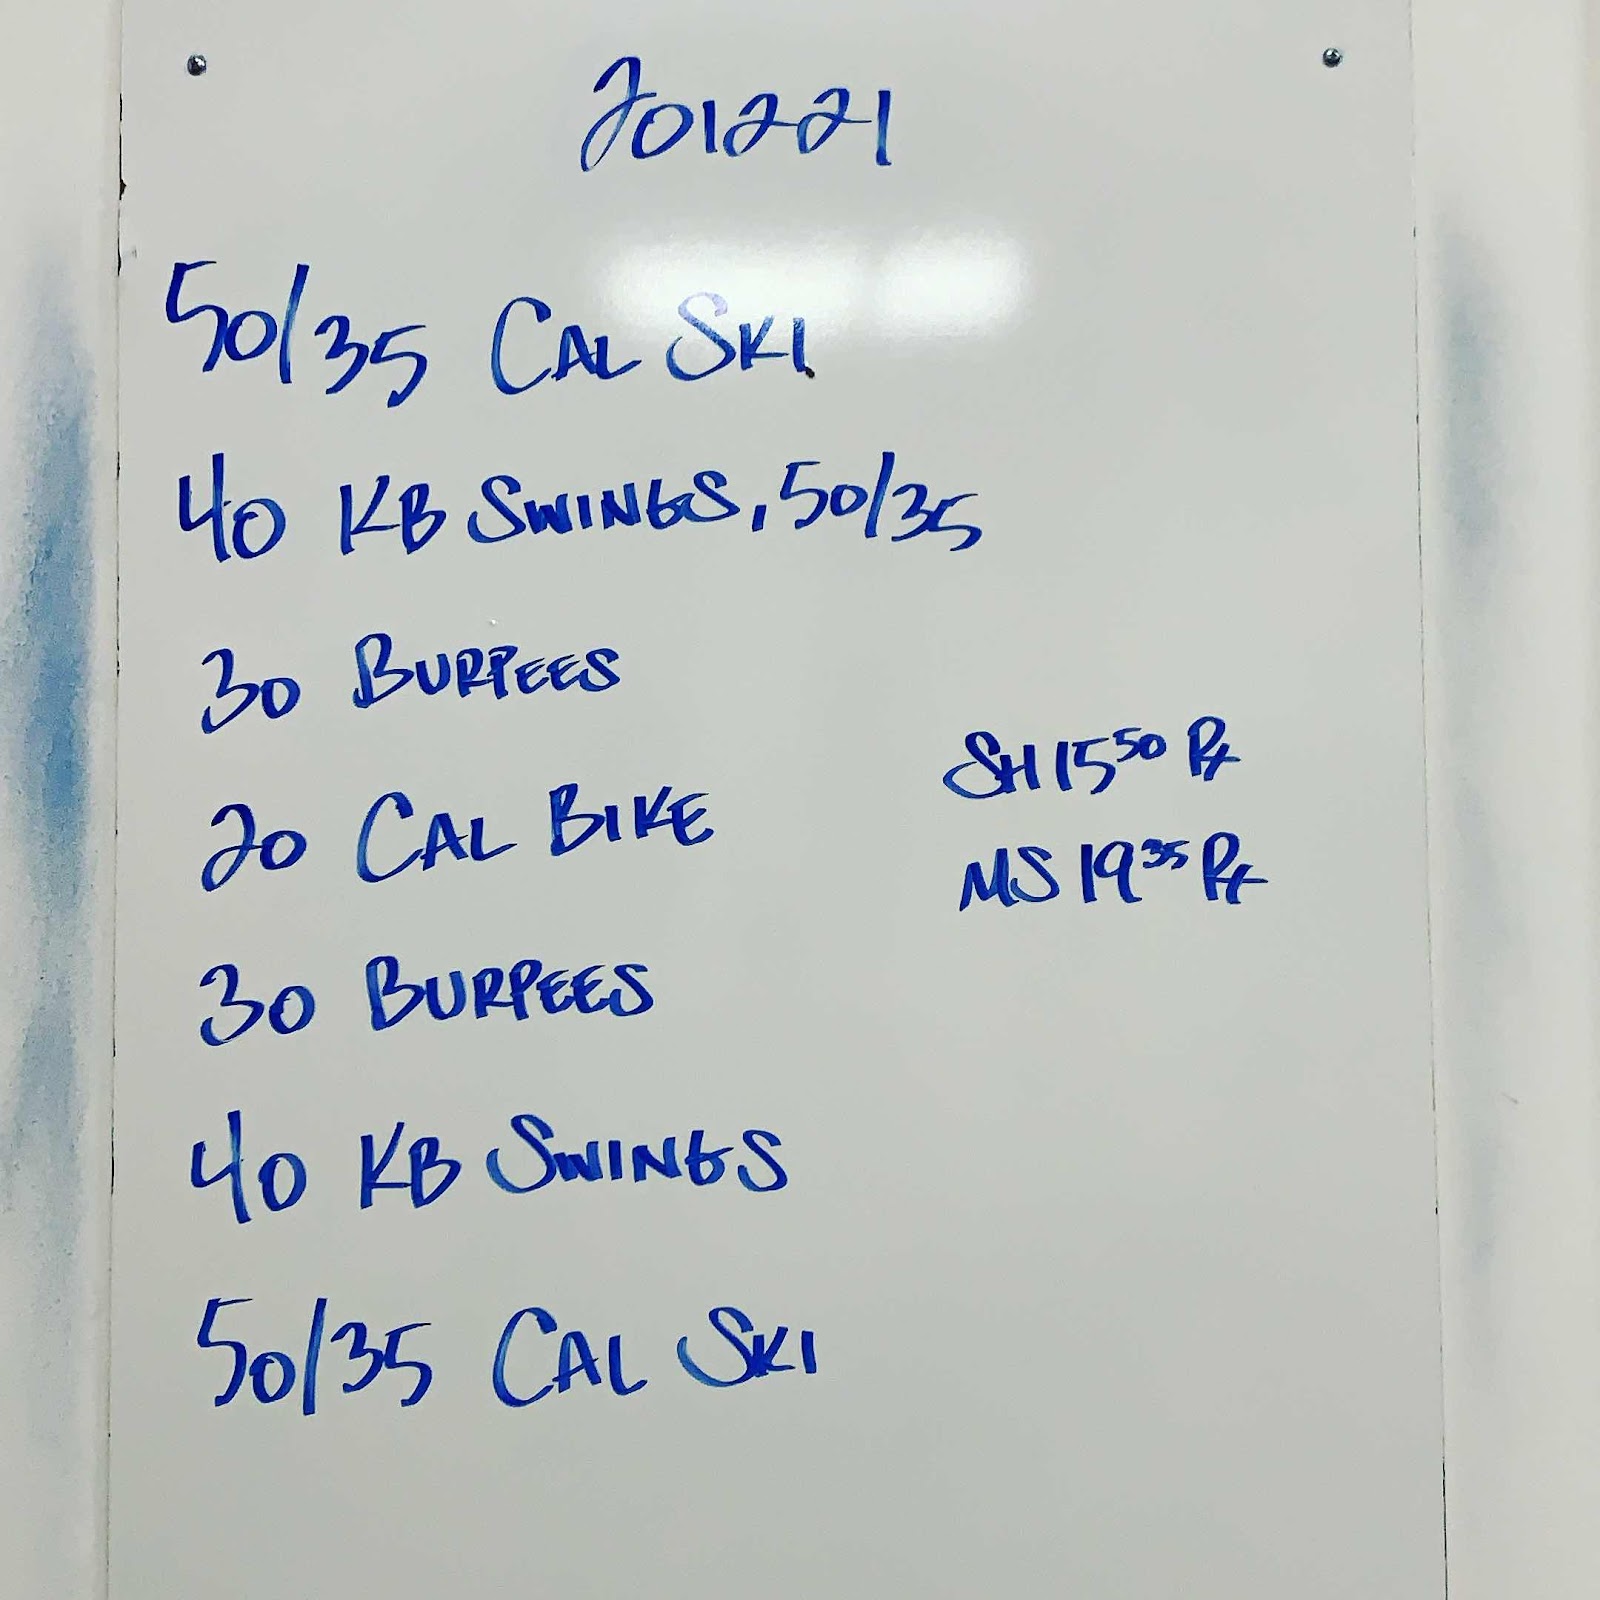 201221
50/35 CAL SKI
40 KB SWINGS, 50/35
30 BURPEES
20 CAL BIKE
30 BURPEES
40 KB SWINGS
50/35 CAL SKI
SH 15 50 Rx
MS 19 35 Rx